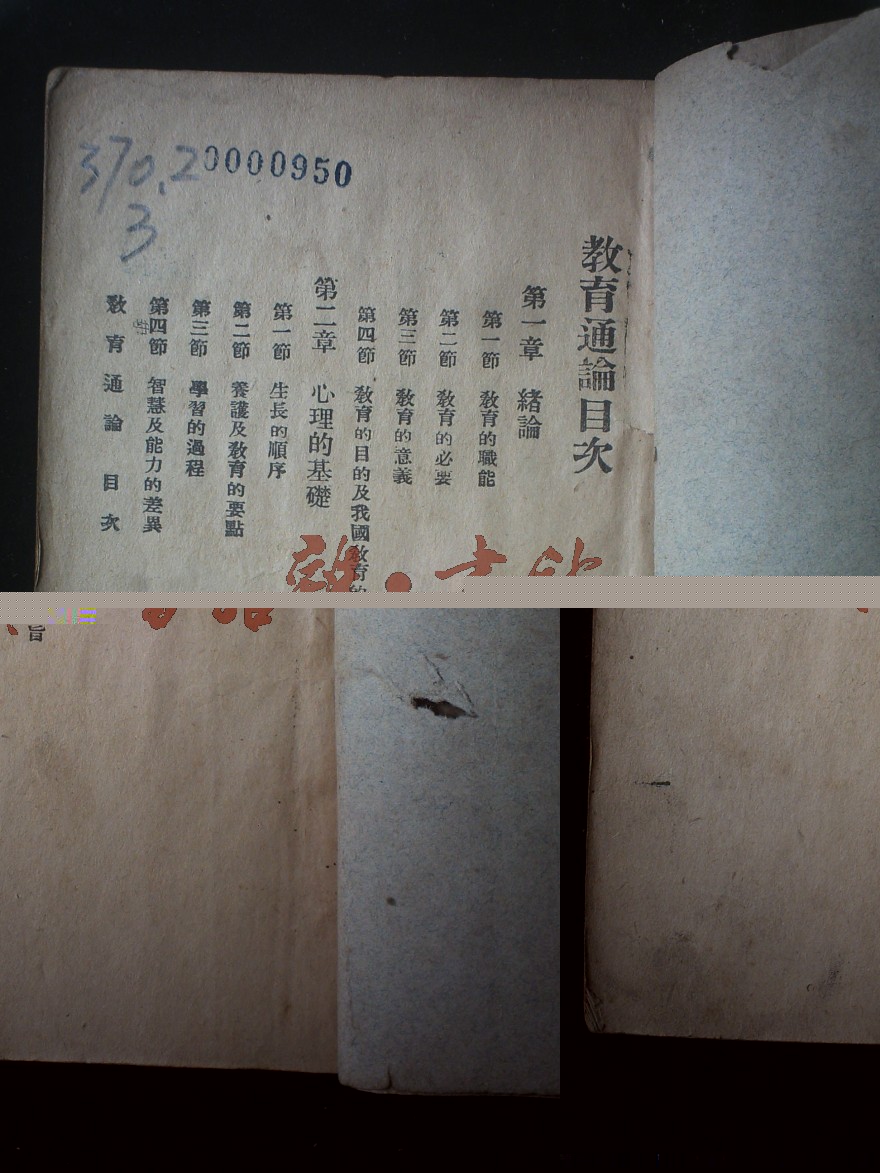 370.2
3
0000950
教育通論目次
第一章 緒論
第一節 教育的職能
第二節 教育的必要
第三節 教育的意義
第四節 教育的目的及我國教育的
旨
第二章 心理的基礎
第一節 生長的順序
第二節 養護及教育的要點
第三節 學習的過程
第四節 智慧及能力的差異
教育通論 目次